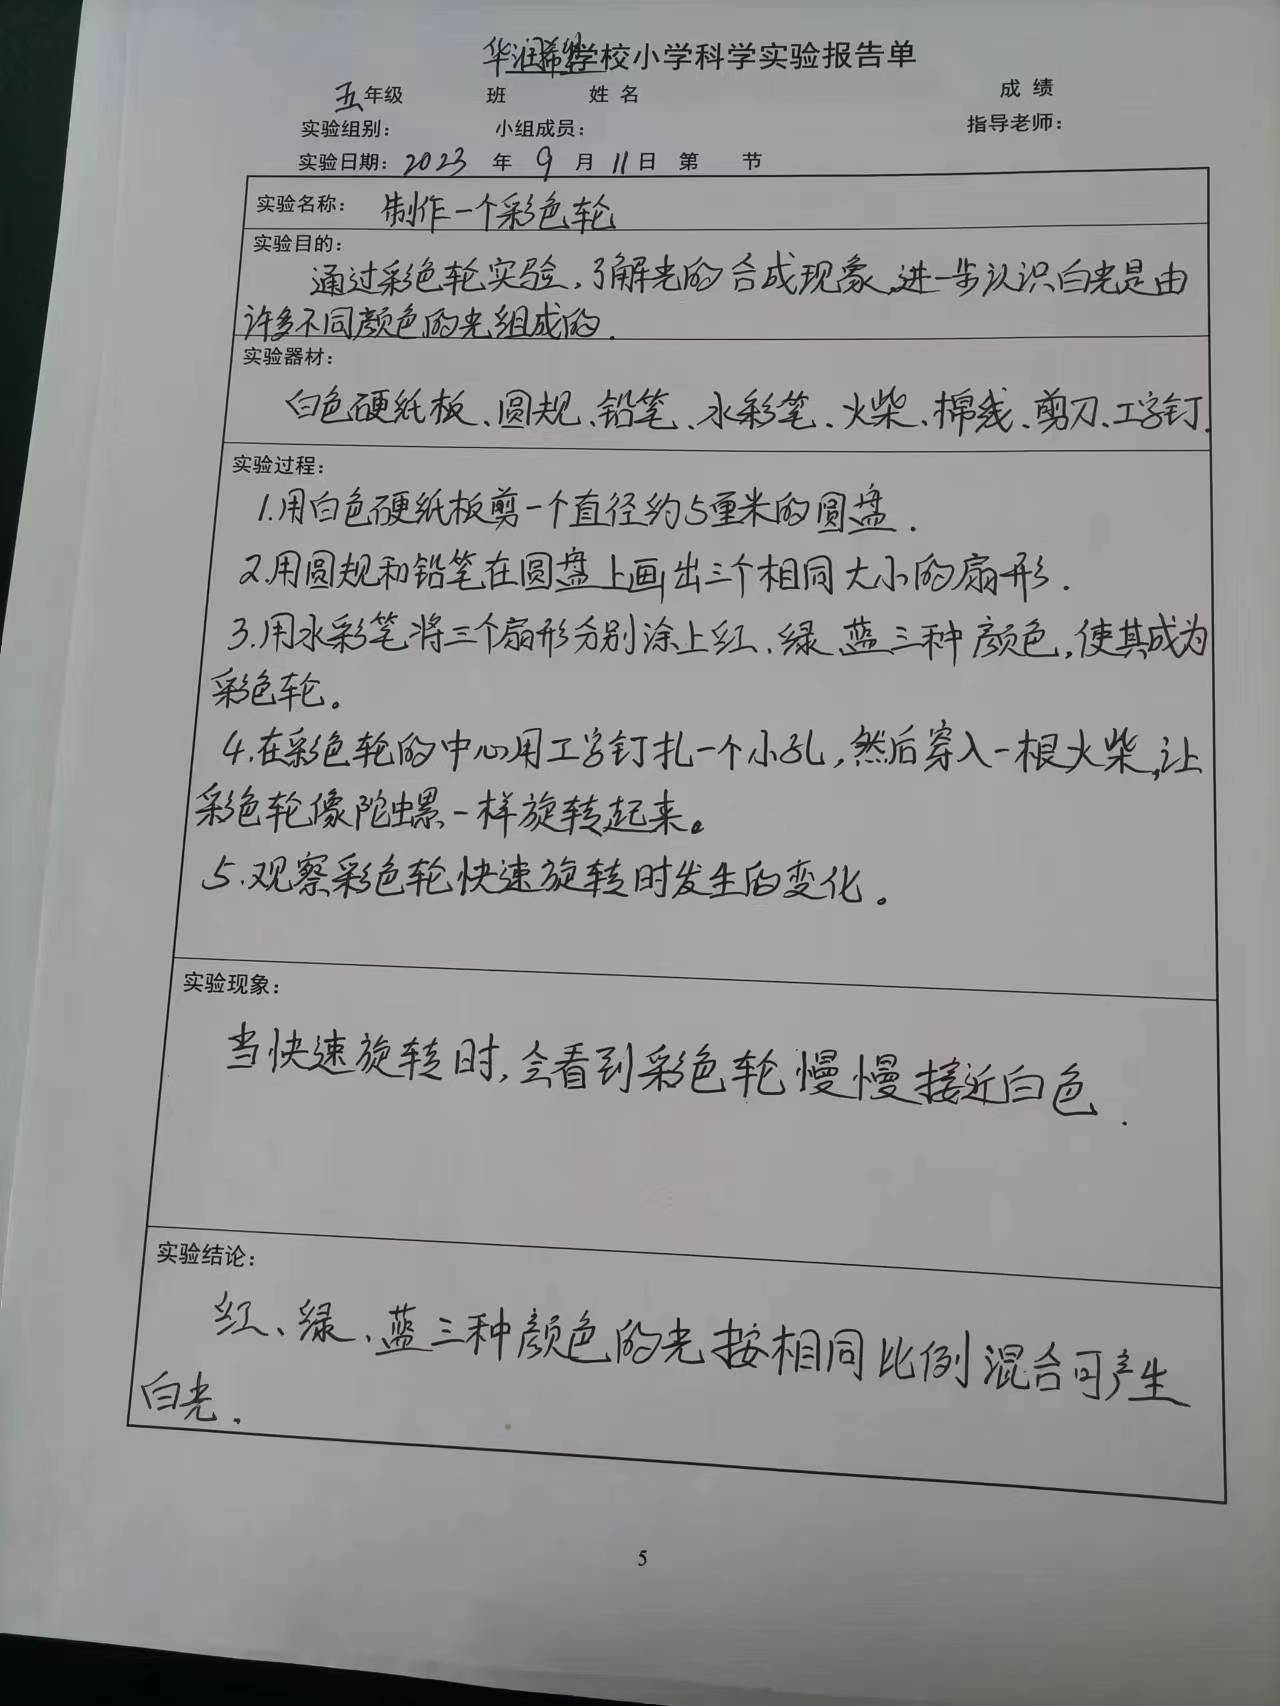 华润希望学校小学科学实验报告单
五年级 班 姓名 成绩
实验组别: 小组成员: 指导老师:
实验日期: 2023 年 9 月 11 日 第 节
实验名称: 制作一个彩色轮
实验目的:
通过彩色轮实验,了解光的合成现象,进一步认识白光是由
许多不同颜色的光组成的.
实验器材:
白色硬纸板、圆规、铅笔、水彩笔、火柴、棉线、剪刀、工字钉.
实验过程:
1.用白色硬纸板剪一个直径约5厘米的圆盘.
2.用圆规和铅笔在圆盘上画出三个相同大小的扇形.
3.用水彩笔将三个扇形分别涂上红、绿、蓝三种颜色,使其成为
彩色轮。
4.在彩色轮的中心用工字钉扎一个小孔,然后穿入一根火柴,让
彩色轮像陀螺一样旋转起来。
5.观察彩色轮快速旋转时发生的变化。
实验现象:
当快速旋转时,会看到彩色轮慢慢接近白色.
实验结论:
红、绿、蓝三种颜色的光按相同比例混合可产生
白光.
5